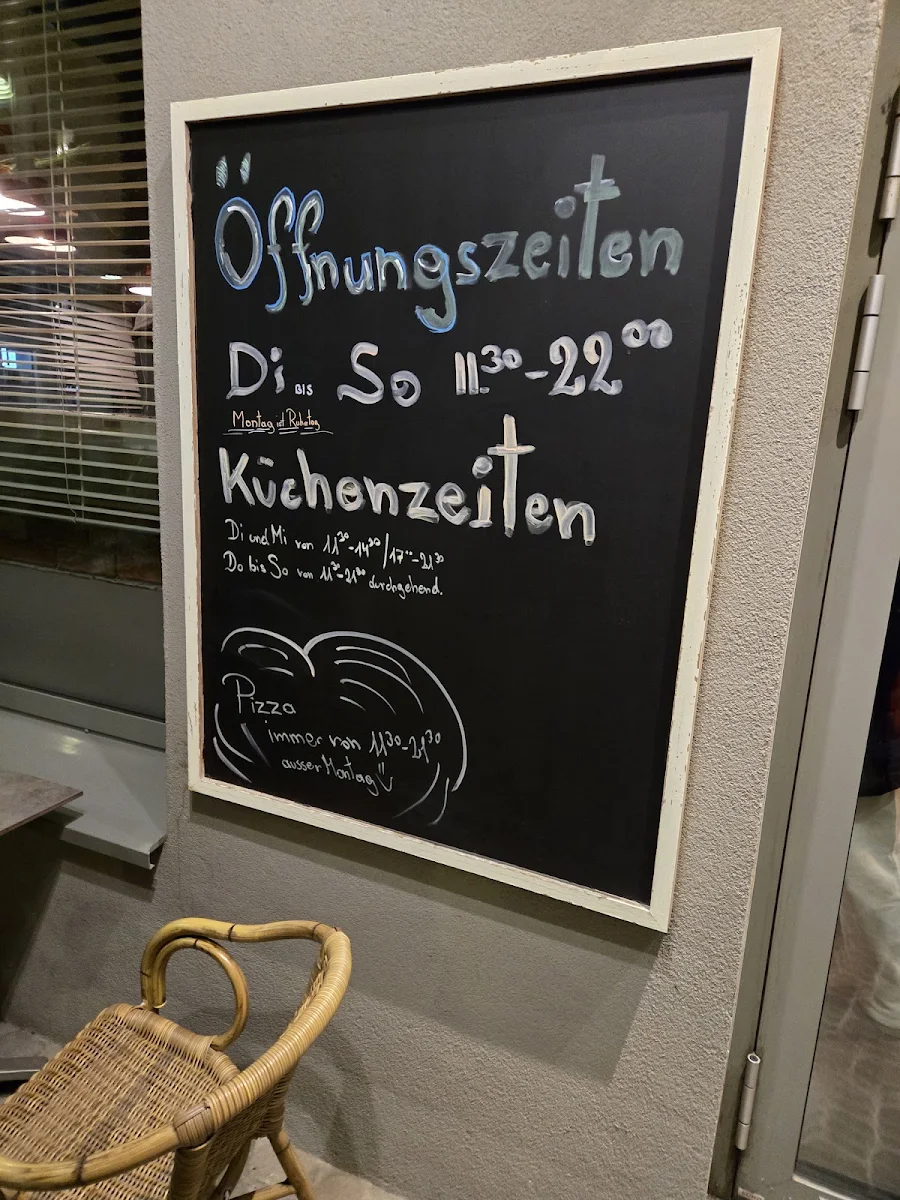 Öffnungszeiten
Di. BIS So 11³⁰-22⁰⁰
Montag ist Ruhetag
Küchenzeiten
Di und Mi von 11³⁰-14³⁰/17⁰⁰-21³⁰
Do bis So von 11³⁰-21³⁰ durchgehend.
Pizza
immer von 11³⁰-21³⁰
ausser Montag